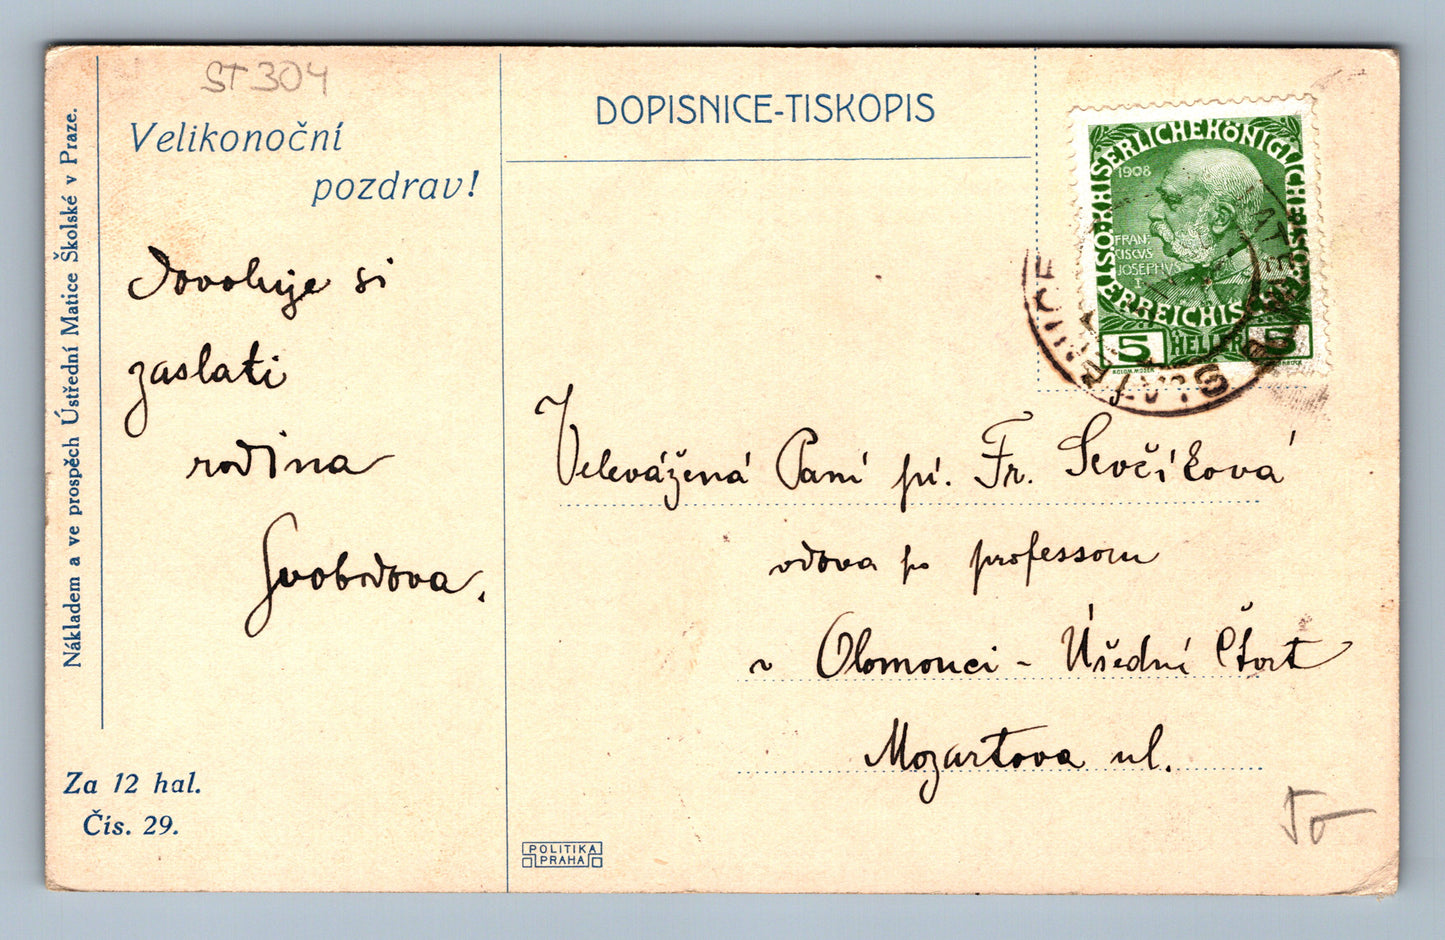 ST 304
Velikonoční
pozdrav!
Dovoluje si
zaslati
rodina
Svobodova.
Nákladem a ve prospěch Ústřední Matice Školské v Praze.
Za 12 hal.
Čís. 29.
DOPISNICE-TISKOPIS
KAISERLICHE KÖNIGLICHE
ÖSTERREICHISCHE
1908
FRAN-
CISCVS
JOSEPHVS
I.
5 HELLER 5
KOLOM. MOSER
Velevážená Paní pí. Fr. Ševčíková
vdova po professoru
v Olomouci - Úřední Čtvrt
Mozartova ul.
POLITIKA
PRAHA